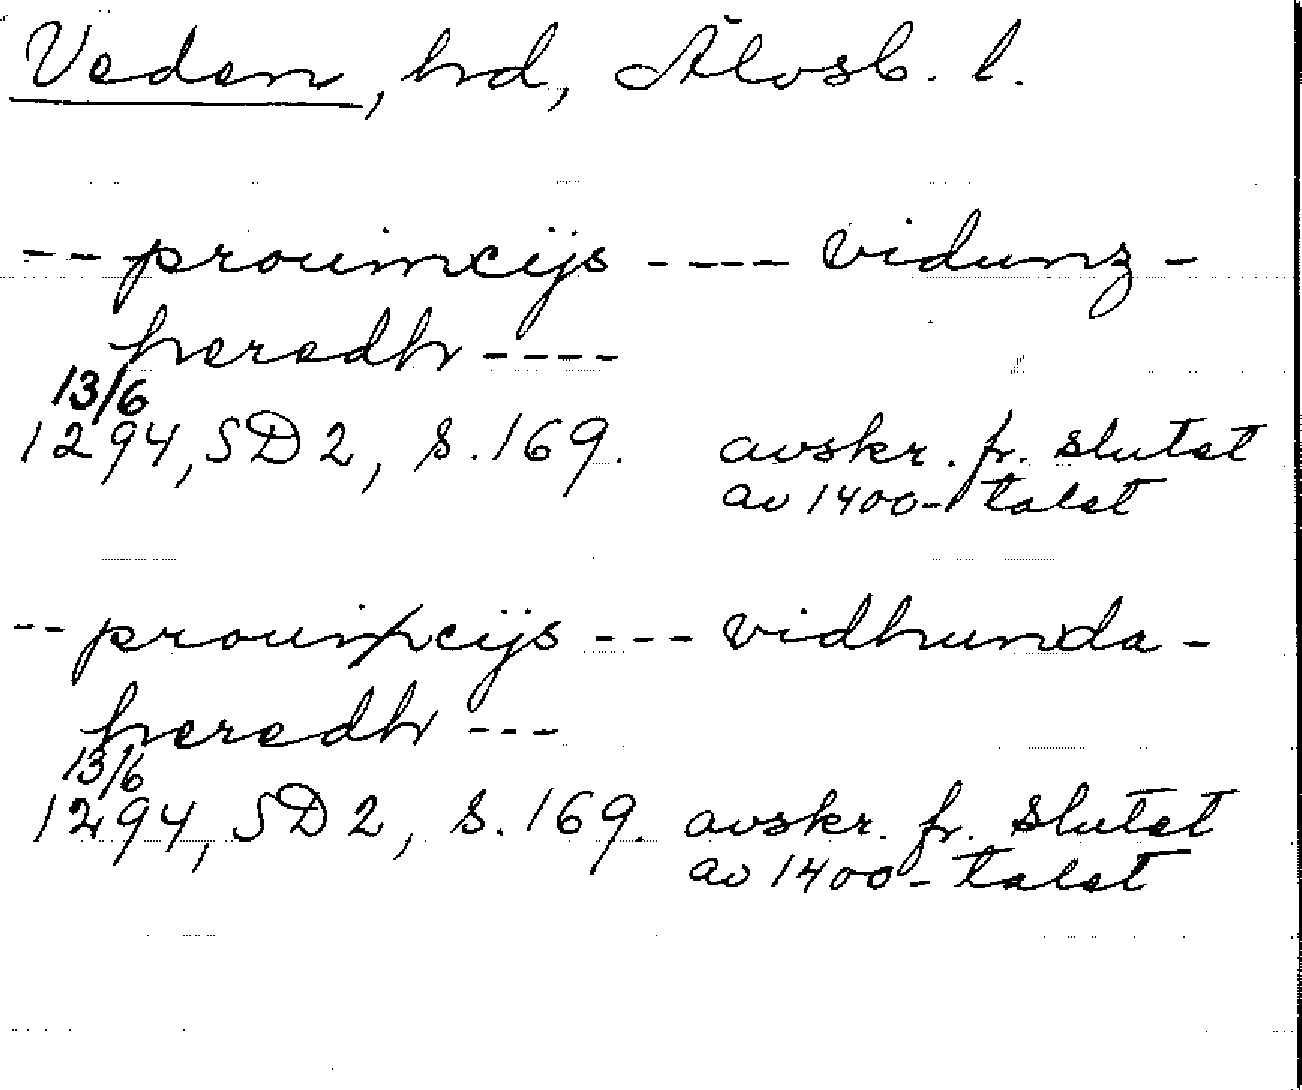 Veden, hd, Älvsb. l.
-- prouincijs ---- vidunz -
heredh ----
13/6
1294, SD 2, s. 169. avskr. fr. slutet
av 1400-talet
-- prouincijs --- vidhunda -
heredh ---
13/6
1294, SD 2, s. 169. avskr. fr. slutet
av 1400-talet